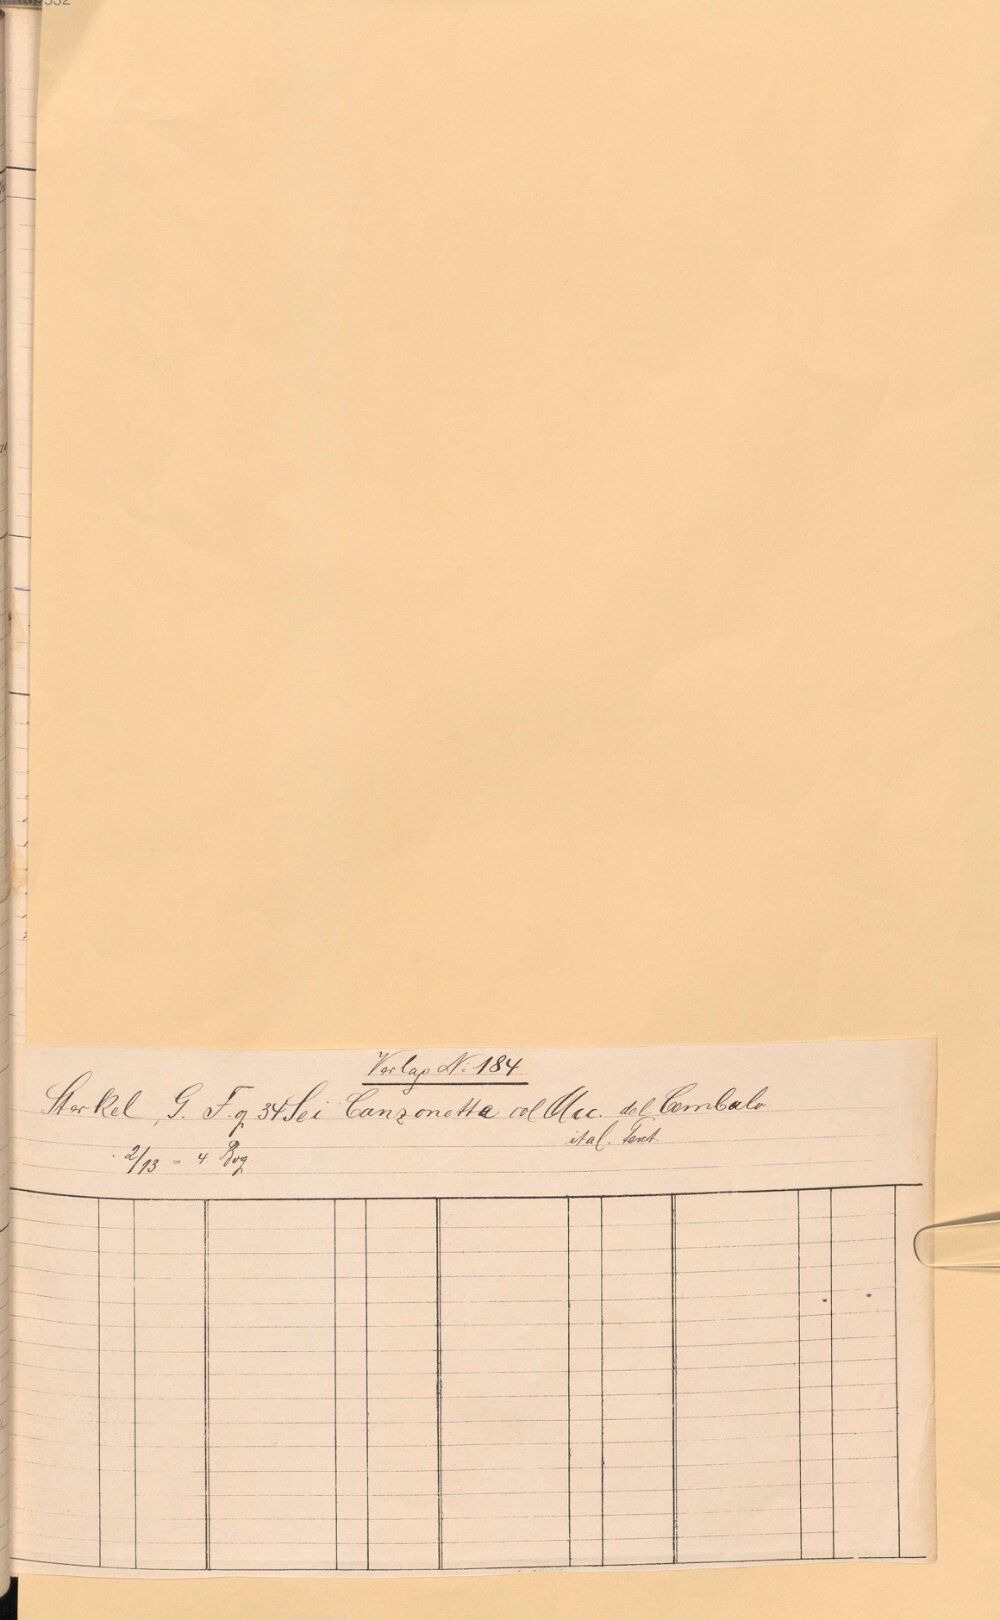 Verlag N: 184
Sterkel, G. F. 34 Sei Canzonetta col Acc. del Cembalo
ital. Text
2/13 - 4 Bog